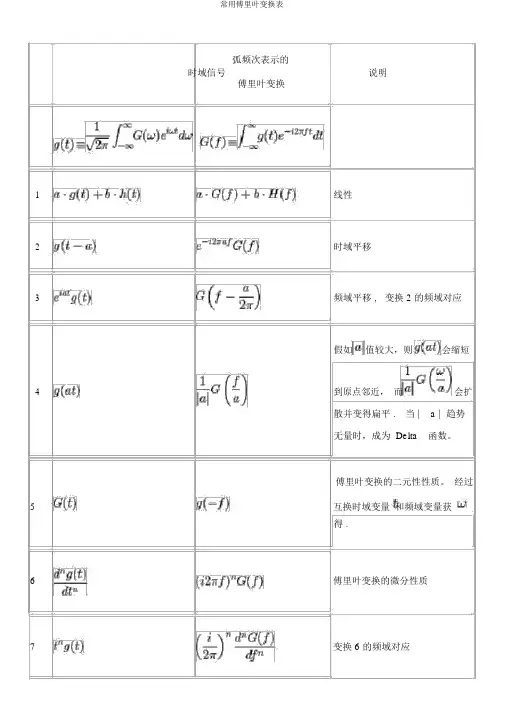 常用傅里叶变换表
时域信号 弧频次表示的 傅里叶变换 说明
g(t) ≡ 1/√(2π) ∫_{-∞}^{∞} G(ω)e^{iωt}dω G(f) ≡ ∫_{-∞}^{∞} g(t)e^{-i2πft}dt
1 a · g(t) + b · h(t) a · G(f) + b · H(f) 线性
2 g(t − a) e^{-i2πaf}G(f) 时域平移
3 e^{iat}g(t) G(f − a/2π) 频域平移 , 变换 2 的频域对应
4 g(at) 1/|a| G(f/a) 假如|a|值较大,则g(at)会缩短
到原点邻近, 而 1/|a| G(ω/a) 会扩
散并变得扁平 . 当 | a | 趋势
无量时,成为 Delta 函数。
5 G(t) g(−f) 傅里叶变换的二元性性质。 经过
互换时域变量 t 和频域变量获 ω
得 .
6 d^n g(t)/dt^n (i2πf)^n G(f) 傅里叶变换的微分性质
7 t^n g(t) (i/2π)^n d^n G(f)/df^n 变换 6 的频域对应